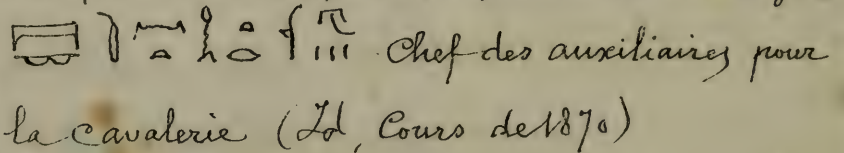 Chef des auxiliaires pour
la cavalerie (Id, Cours de 1870)